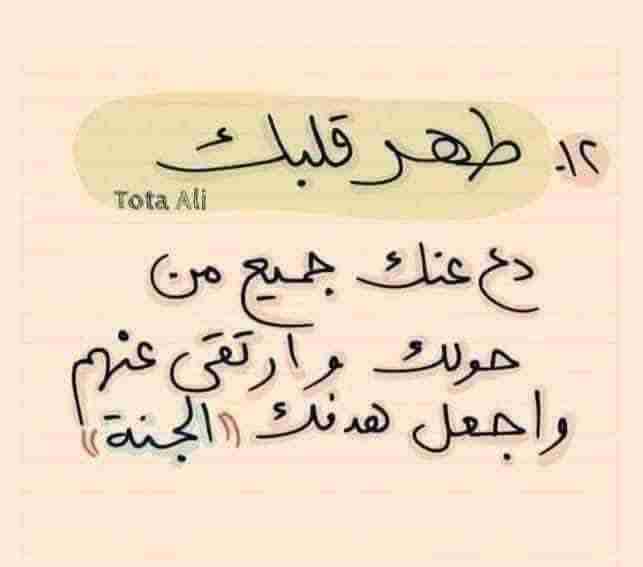 ١٢. طهر قلبك
Tota Ali
دع عنك جميع من
حولك وارتقى عنهم
واجعل هدفك "الجنة"